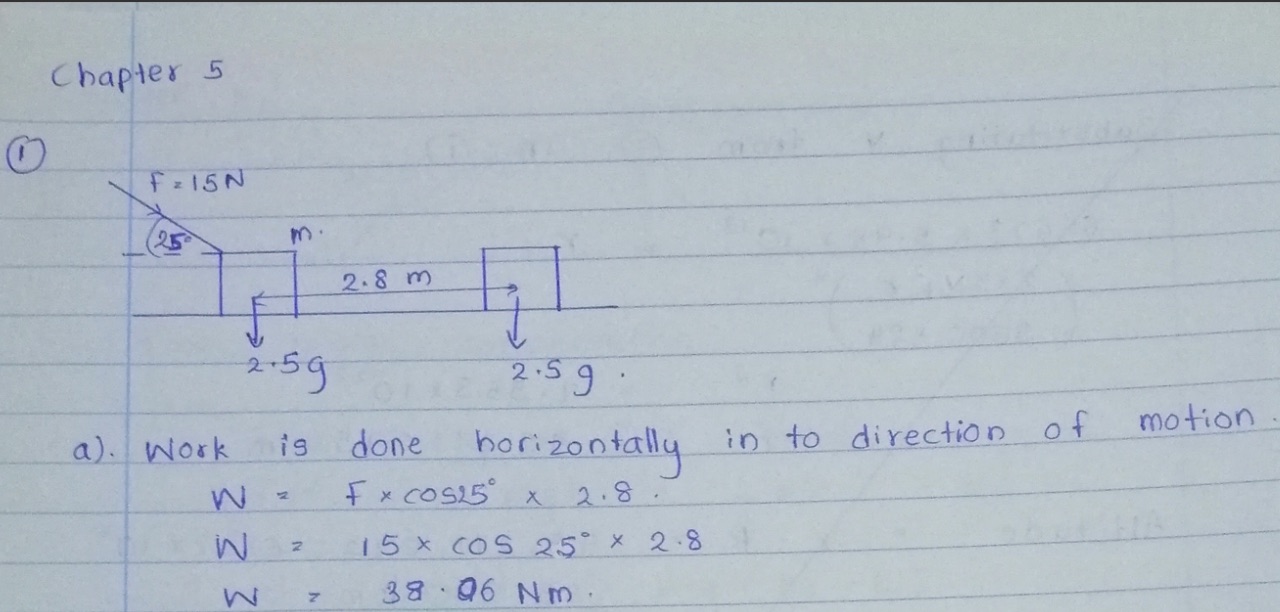 Chapter 5
①
F = 15N
25°
m.
2.8 m
2.5g
2.5g.
a). Work is done horizontally in to direction of motion.
W = F × cos25° × 2.8.
W = 15 × cos 25° × 2.8
W = 38.06 Nm.